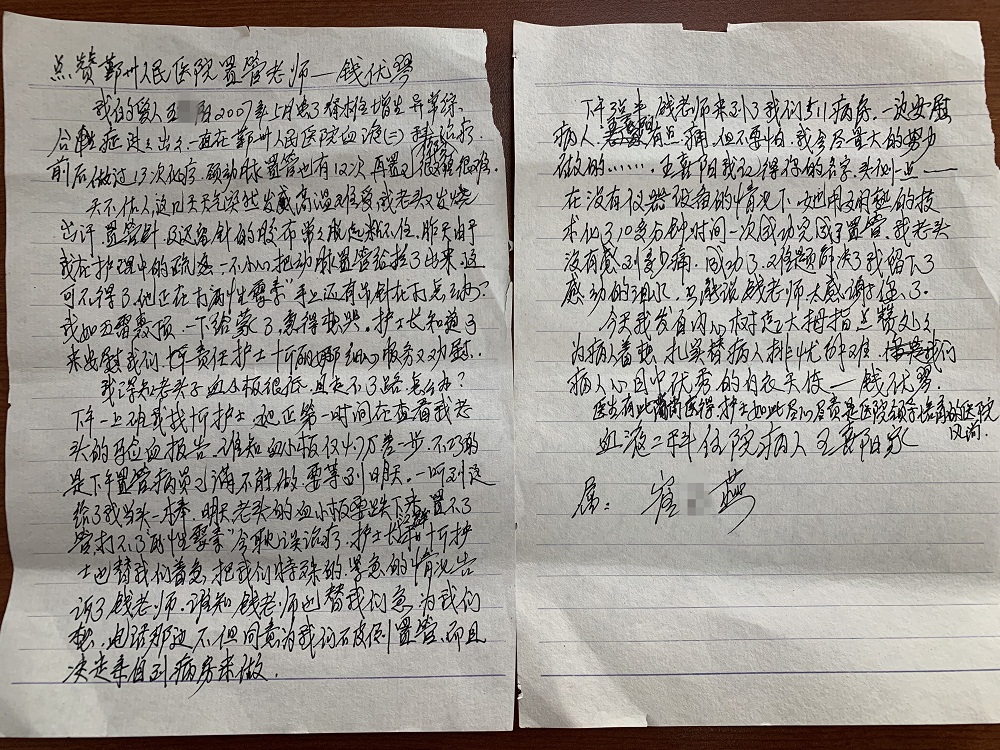 点赞鄞州人民医院置管老师—钱优琴
我们的爱人王 阳2007年5月患了骨髓增生异常综
合性症 进进出出一直在鄞州人民医院血液(二)科治疗.
前后做过13次化疗.颈动脉置管也有12次 再置已很难很难.
天不佑人,这几天天气突然发威高温难受,我老头又发烧
出汗 置管针 及送留针的胶布 粘不住.昨天由于
我在护理中的疏忽一不小心把动脉置管给拉了出来.这
可不得了.他正在打 霉素”手上还有吊针在打怎么办?
我如五雷轰顶.一下给蒙了,急得想哭.护士长知道了
来安慰我们.忻责任护士忻丽娜细心服务又劝慰.
我深知老头子血小板很低.且走不了路怎么办?
下午一上班我找忻护士.她正第一时间在查看我老
头的验血报告.谁知血小板仅4.7万差一步.不巧的
是下午置管病员又满不能做.要等到明天.一听到这
给了我当头一棒.明天老头的血小板要跌下来.置不了
管,打不了 霉素”会耽误治疗.护士长和忻护
士也替我们着急.把我们特殊的.紧急的情况告
诉了钱老师.谁知钱老师也替我们急.为我们
想.电话那边不但同意为我们破例置管.而且
决定亲自到病房来做.
下午 钱老师来到了我们511病房.一次安慰
病人. 有点痛.但不要怕.我会尽最大的努力
做好的……王喜阳我记得你的名字.头侧一点——
在没有仪器设备的情况下.她用 的技
术化了10多分钟时间一次成功完成了置管.我老头
没有感到多少痛.成功了.难题解决了我留下了
感动的泪水.只能说钱老师太感谢您了.
今天我发自内心树起大拇指点赞处处
为病人着想.扎实替病人排忧解难.您是我们
病人心目中优秀的白衣天使—钱优琴.
医生有此高尚医德.护士如此尽心尽责是医院领导培育的医院
风尚.
血液二科住院病人王喜阳家
属: 崔 燕